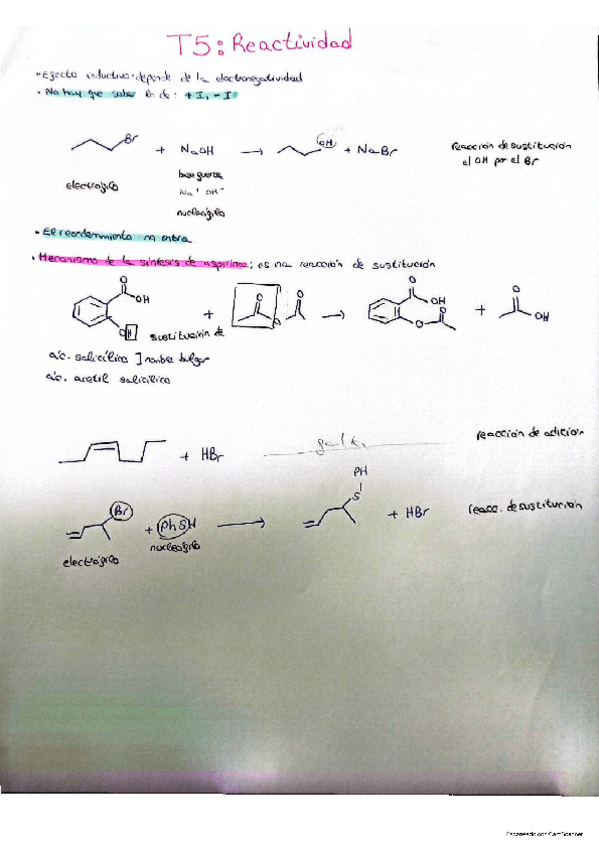 T5: Reactividad
• Efecto inductivo: depende de la electronegatividad
• No hay que saber lo de: +I, -I
Br + NaOH → OH + NaBr Reacción de sustitución
el OH por el Br
electrófilo base fuerte
Na⁺ OH⁻
nucleófilo
• El reordenamiento no entra
• Mecanismo de la síntesis de aspirina: es una reacción de sustitución
O OH OH + O O O → O OH O O + O OH
sustitución de
ác. salicílico ] nombre vulgar
ác. acetil salicílico
+ HBr falta reacción de adición
Br + PhSH → PH S + HBr reacc. de sustitución
electrófilo nucleófilo
Escaneado con CamScanner